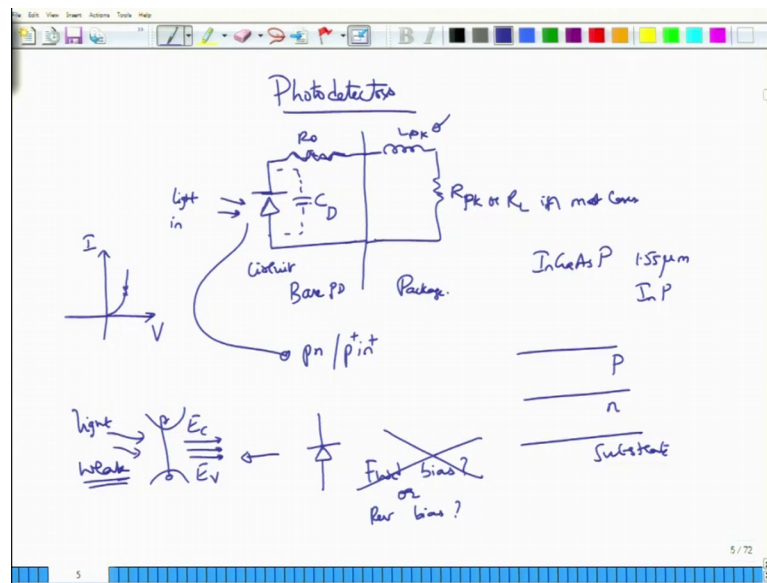 File Edit View Insert Actions Tools Help
Photodetectors
R₀ Lpk
light in
C_D
R_PK or R_L in most cases
Circuit
Bare PD Package.
InGaAsP 1.55μm
InP
I
V
pn / p⁺in⁺
p
n
Substrate
light
weak
E_C
E_V
Fwd bias?
or
Rev bias?
5 / 72
5